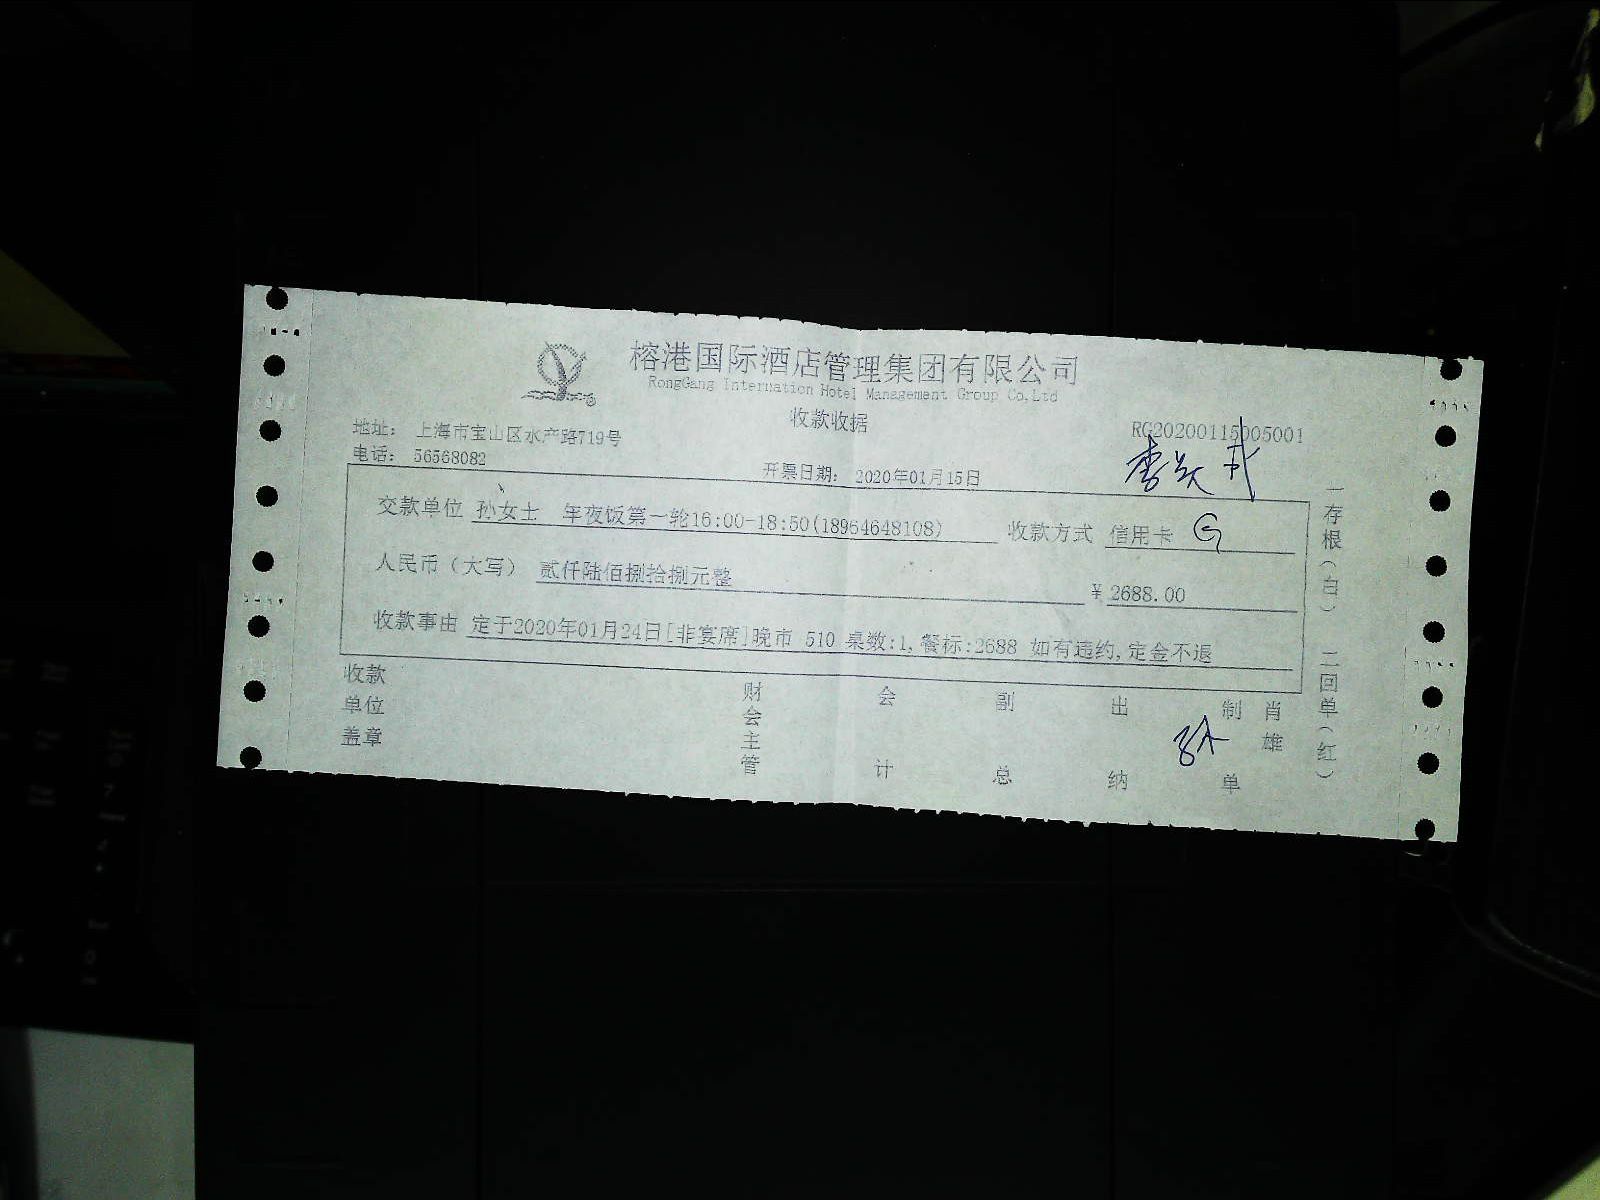 榕港国际酒店管理集团有限公司
RongGang Internation Hotel Management Group Co,Ltd
收款收据
地址: 上海市宝山区水产路719号
RG20200115005001
电话: 56568082
开票日期: 2020年01月15日
交款单位 孙女士 年夜饭第一轮16:00-18:50(18964648108) 收款方式 信用卡
人民币(大写) 贰仟陆佰捌拾捌元整 ¥2688.00
收款事由 定于2020年01月24日[非宴席]晚市 510 桌数:1,餐标:2688 如有违约,定金不退
收款单位盖章 财会主管 会计 副总 出纳 制单 肖雄
一存根(白) 二回单(红)